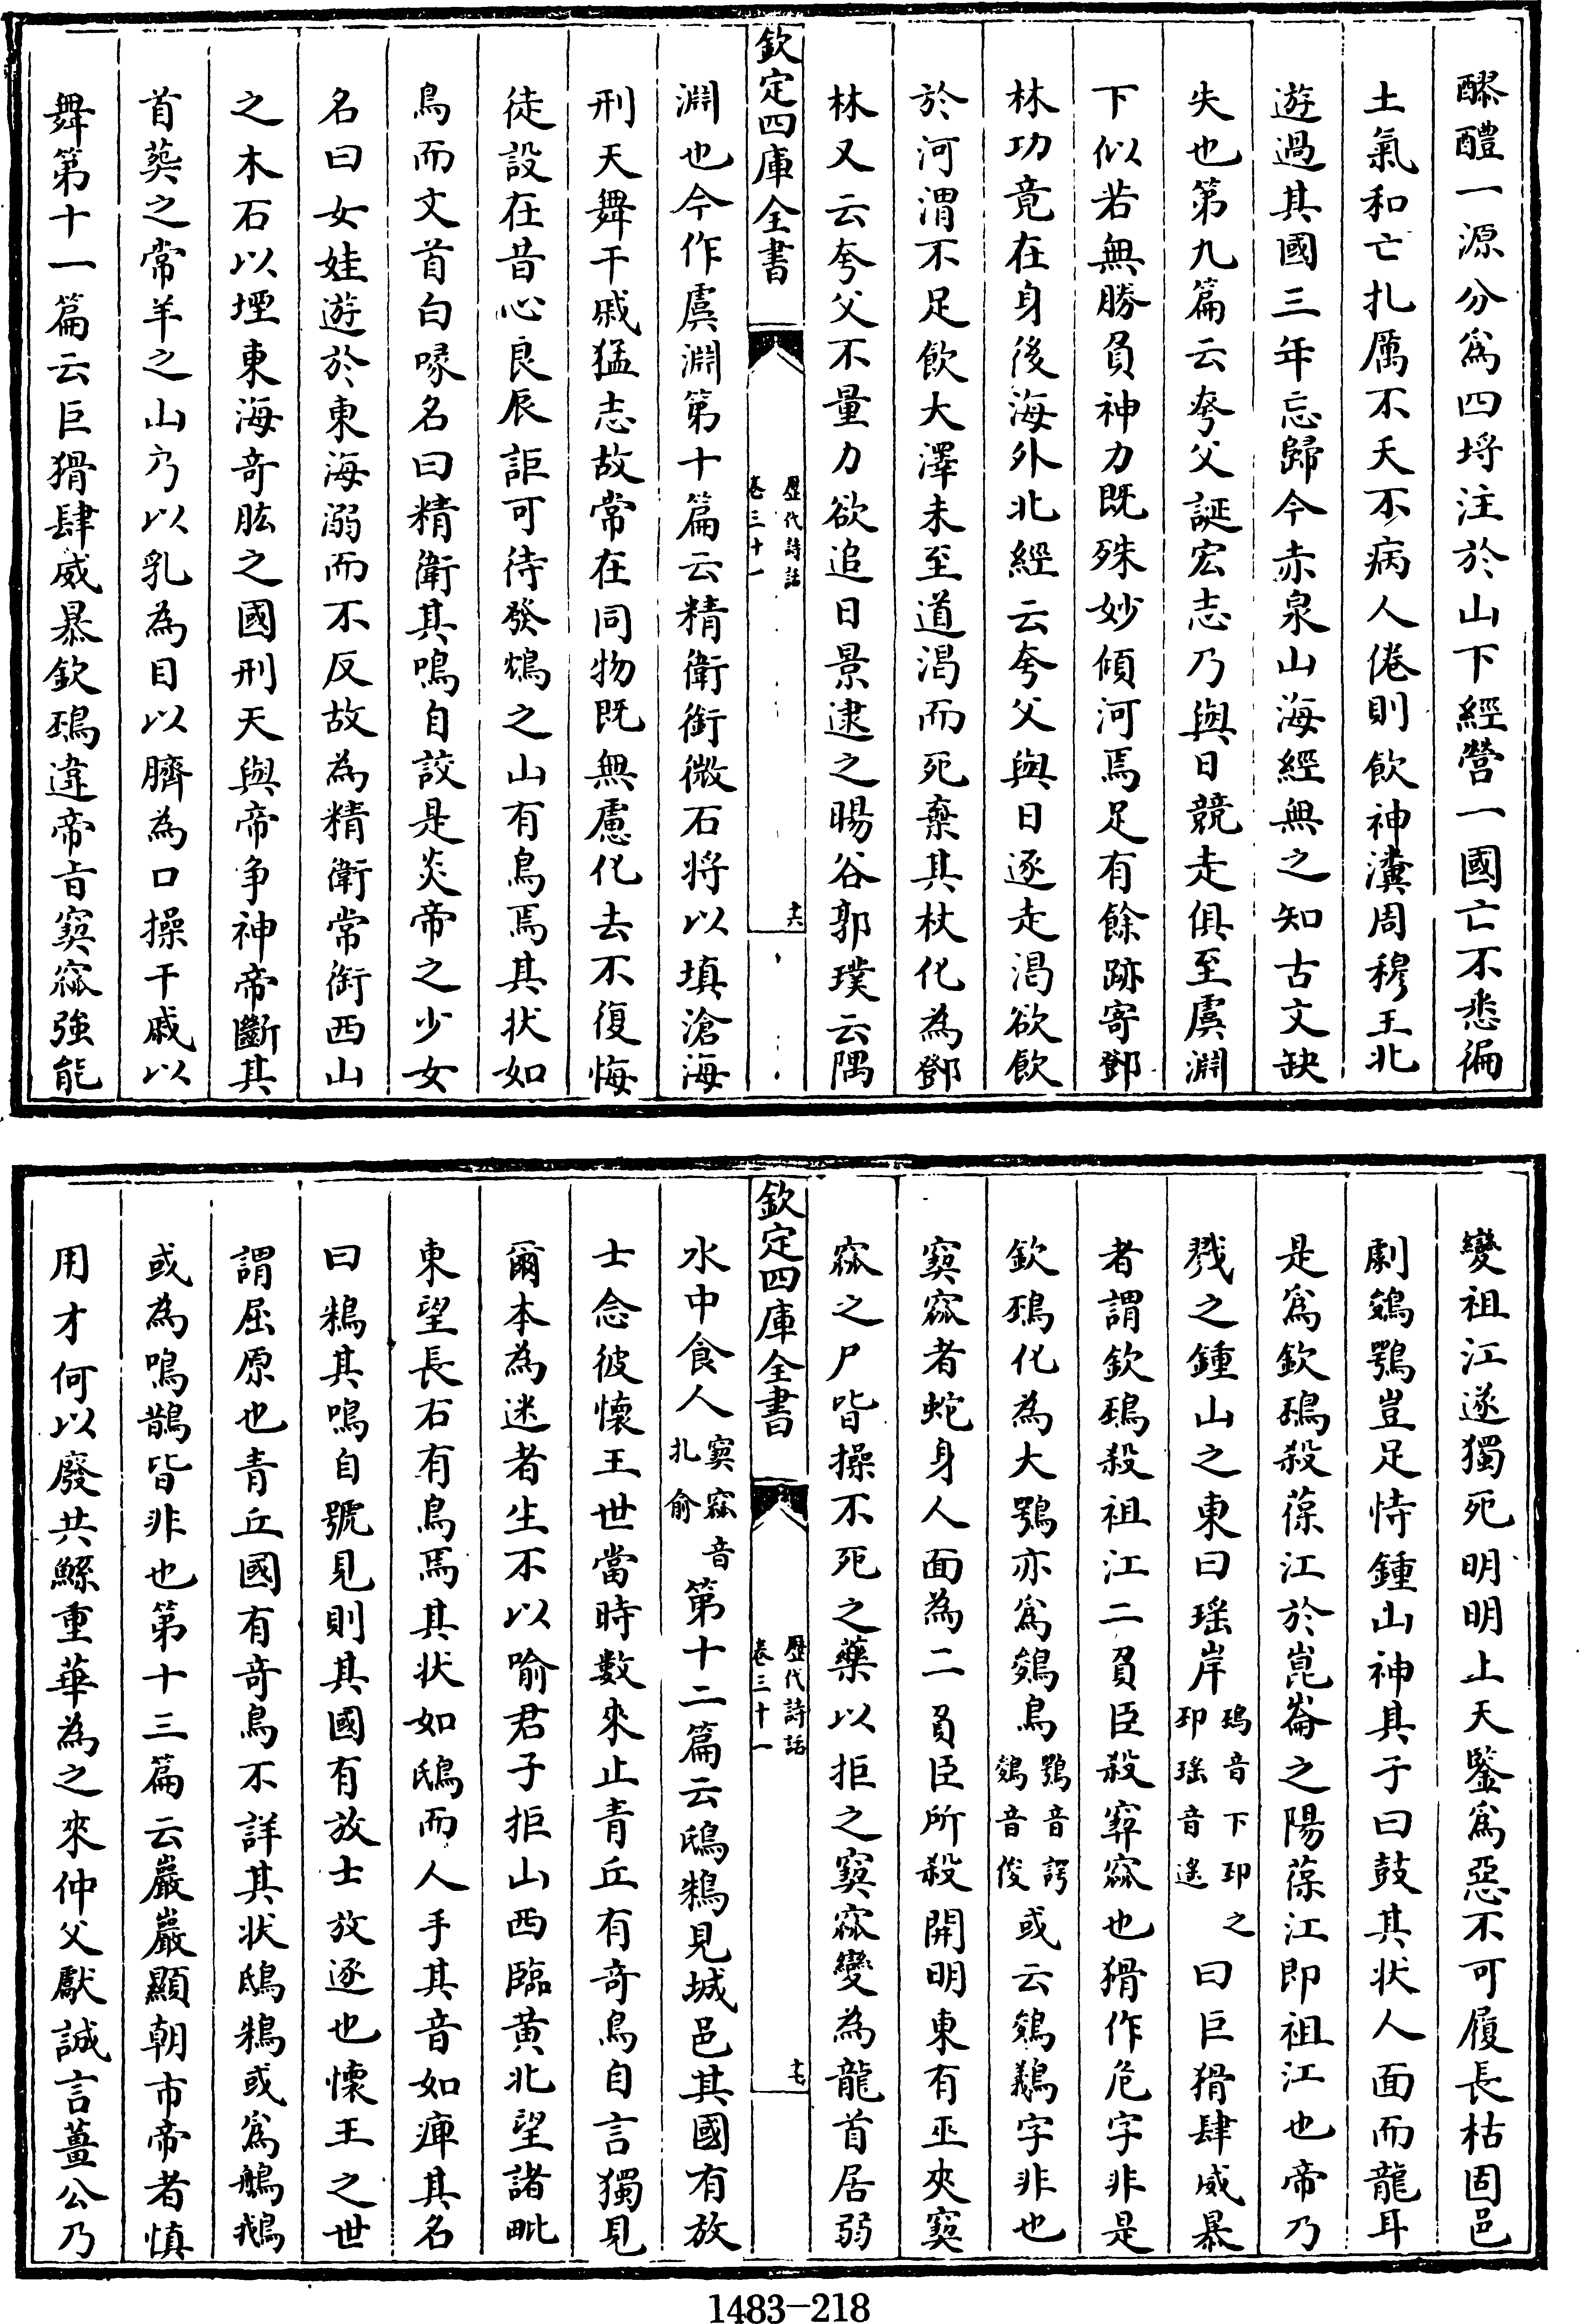 醪醴一源分爲四埒注於山下經營一國亡不悉徧
土氣和亡扎厲不夭不病人倦則飲神瀵周穆王北
遊過其國三年忘歸今赤泉山海經無之知古文缺
失也第九篇云夸父誕宏志乃與日競走俱至虞淵
下似若無勝負神力既殊妙傾河焉足有餘跡寄鄧
林功竟在身後海外北經云夸父與日逐走渴欲飲
於河渭不足飲大澤未至道渴而死棄其杖化為鄧
林又云夸父不量力欲追日景逮之暘谷郭璞云隅
欽定四庫全書
歷代詩話
卷三十一
十六
淵也今作虞淵第十篇云精衛銜微石將以填滄海
刑天舞干戚猛志故常在同物既無慮化去不復悔
徒設在昔心良辰詎可待發鳩之山有鳥焉其狀如
鳥而文首白喙名曰精衛其鳴自詨是炎帝之少女
名曰女娃遊於東海溺而不反故為精衛常銜西山
之木石以堙東海奇肱之國刑天與帝争神帝斷其
首葬之常羊之山乃以乳為目以臍為口操干戚以
舞第十一篇云巨猾肆威暴欽䲹違帝旨窫窳強能
變祖江遂獨死明明上天鑒爲惡不可履長枯固邑
劇鵕鶚豈足恃鍾山神其子曰鼓其狀人面而龍耳
是爲欽䲹殺葆江於崑崙之陽葆江即祖江也帝乃
戮之鍾山之東曰瑤岸䲹音下邳之邳瑤音遙曰巨猾肆威暴
者謂欽䲹殺祖江二負臣殺窫窳也猾作危字非是
欽䲹化為大鶚亦爲鵕鳥鶚音諤鵕音俊或云鵕鵝字非也
窫窳者蛇身人面為二負臣所殺開明東有巫夾窫
窳之尸皆操不死之藥以拒之窫窳變為龍首居弱
欽定四庫全書
歷代詩話
卷三十一
十七
水中食人窫窳音札俞第十二篇云鴟鴸見城邑其國有放
士念彼懷王世當時數來止青丘有奇鳥自言獨見
爾本為迷者生不以喻君子拒山西臨黃北望諸毗
東望長右有鳥焉其狀如鴟而人手其音如痺其名
曰鴸其鳴自號見則其國有放士放逐也懷王之世
謂屈原也青丘國有奇鳥不詳其狀鴟鴸或爲鵃鵝
或為鳴鵲皆非也第十三篇云巖巖顯朝市帝者慎
用才何以廢共鯀重華為之來仲父獻誠言薑公乃
1483-218